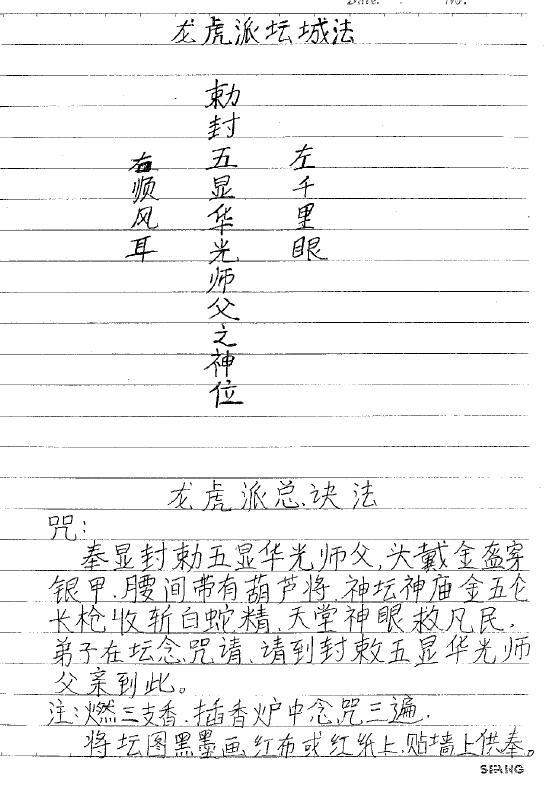 Date. No.
龙虎派坛城法
勅封五显华光师父之神位
左千里眼
右顺风耳
龙虎派总诀法
咒:
奉显封勅五显华光师父,头戴金盔穿
银甲.腰间带有葫芦将.神坛神庙金五仑
长枪收斩白蛇精.天堂神眼救凡民.
弟子在坛念咒请.请到封敕五显华光师
父亲到此。
注:燃三支香.插香炉中念咒三遍.
将坛图黑墨画红布或红纸上.贴墙上供奉。